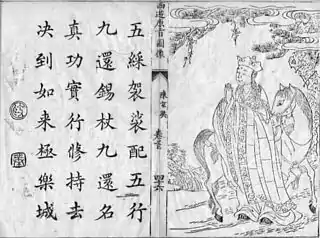 西遊原旨圖像
陳玄奘
卷首
五綵袈裟配五行
九還錫杖九還名
真功實行修持去
决到如來極樂城